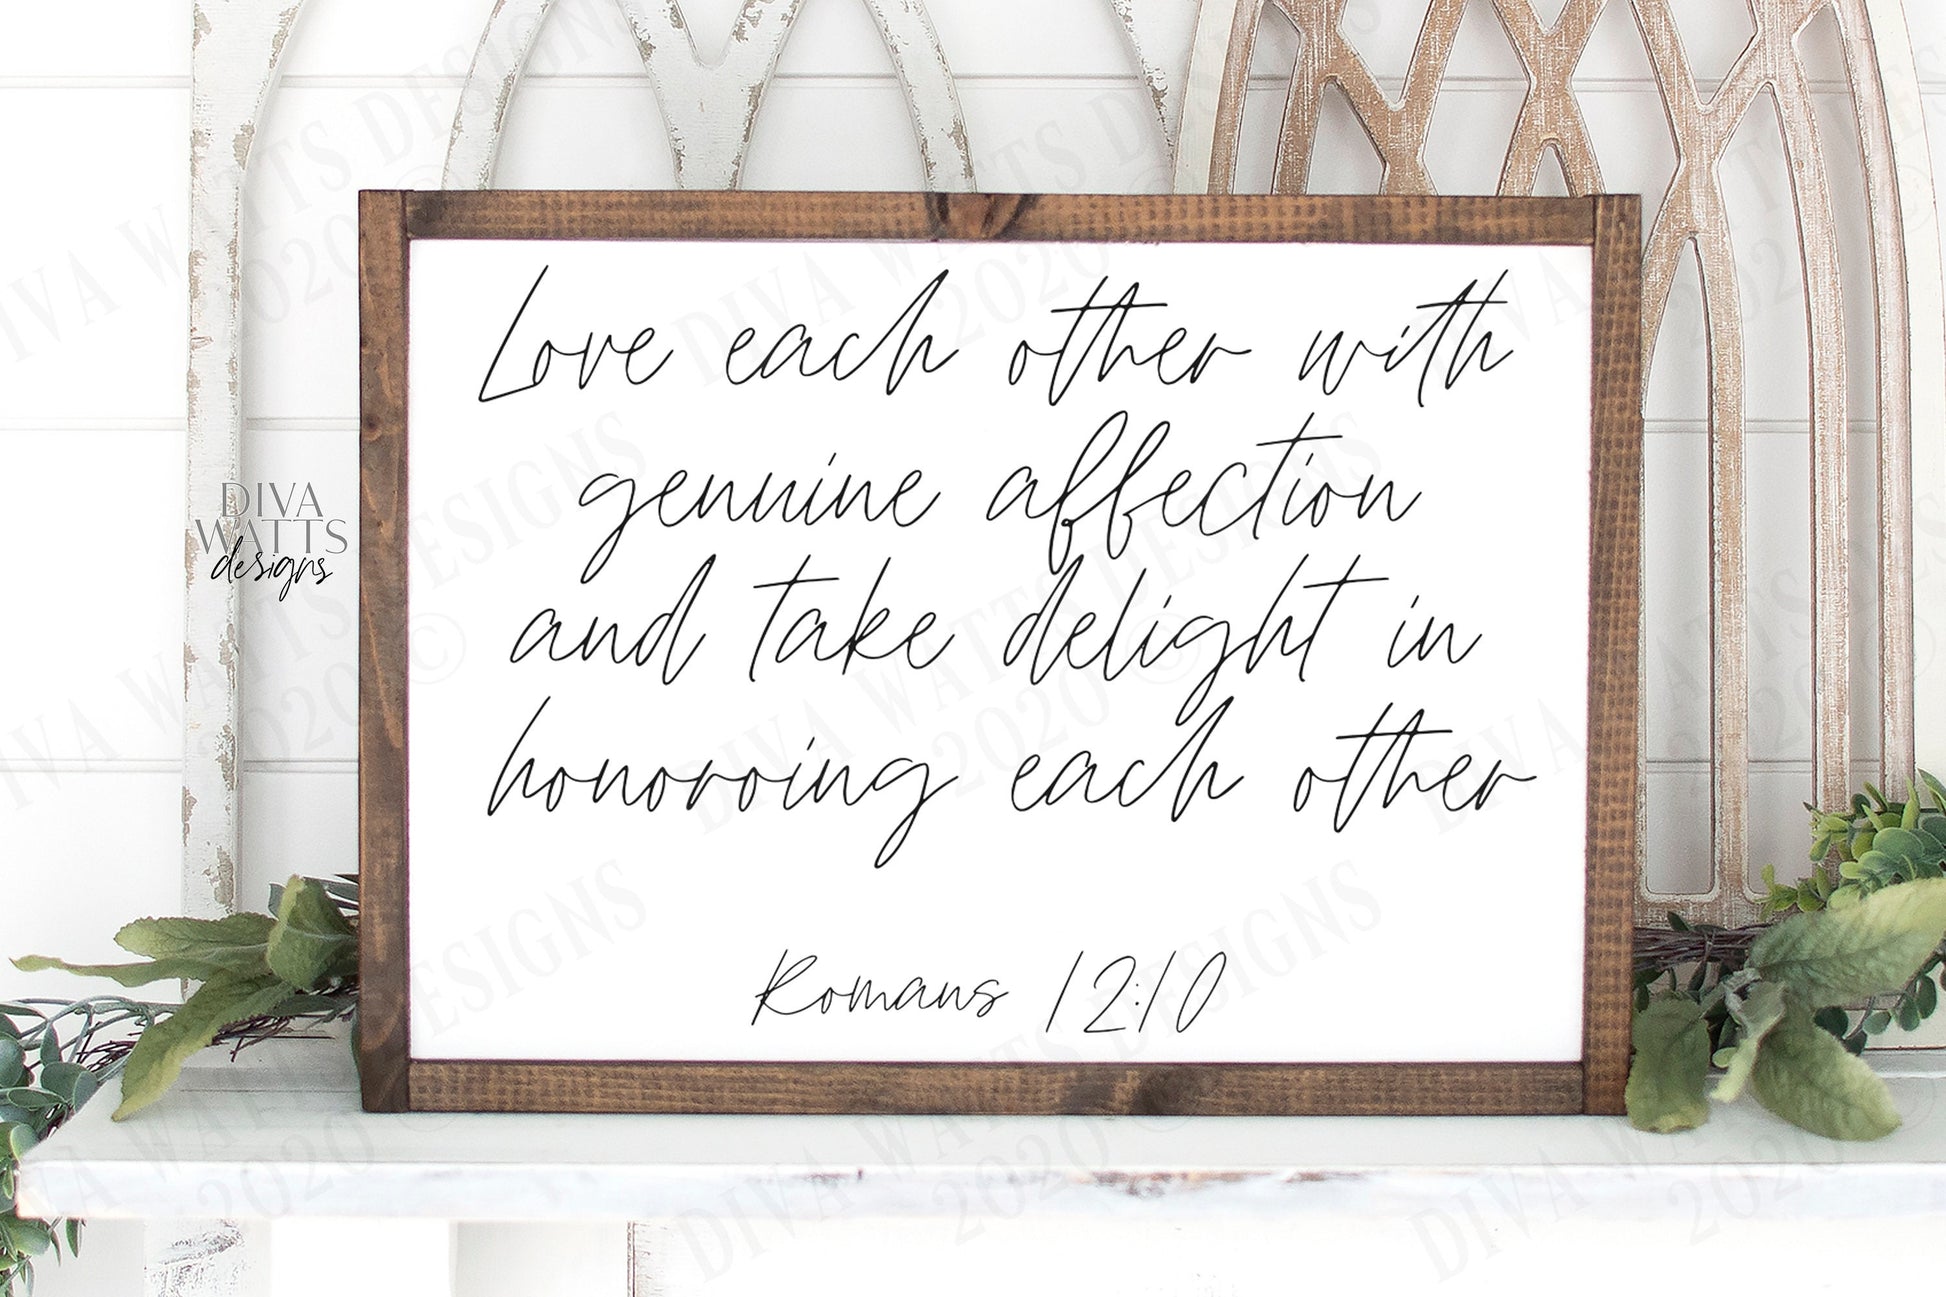 Love each other with
genuine affection
and take delight in
honoroing each other
Romans 12:10
DIVA
WATTS
designs
DIVA WATTS DESIGNS
2020 ©